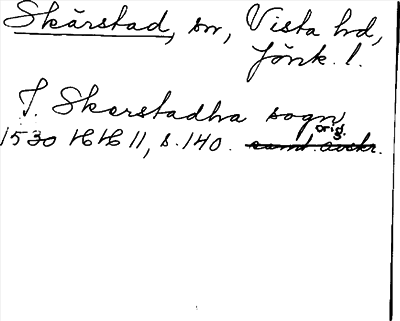 Skärstad, sn, Vista hd,
Jönk. l.
J. Skerstadha sogn
orig.
1530 HH 11, s. 140. samt. avskr.